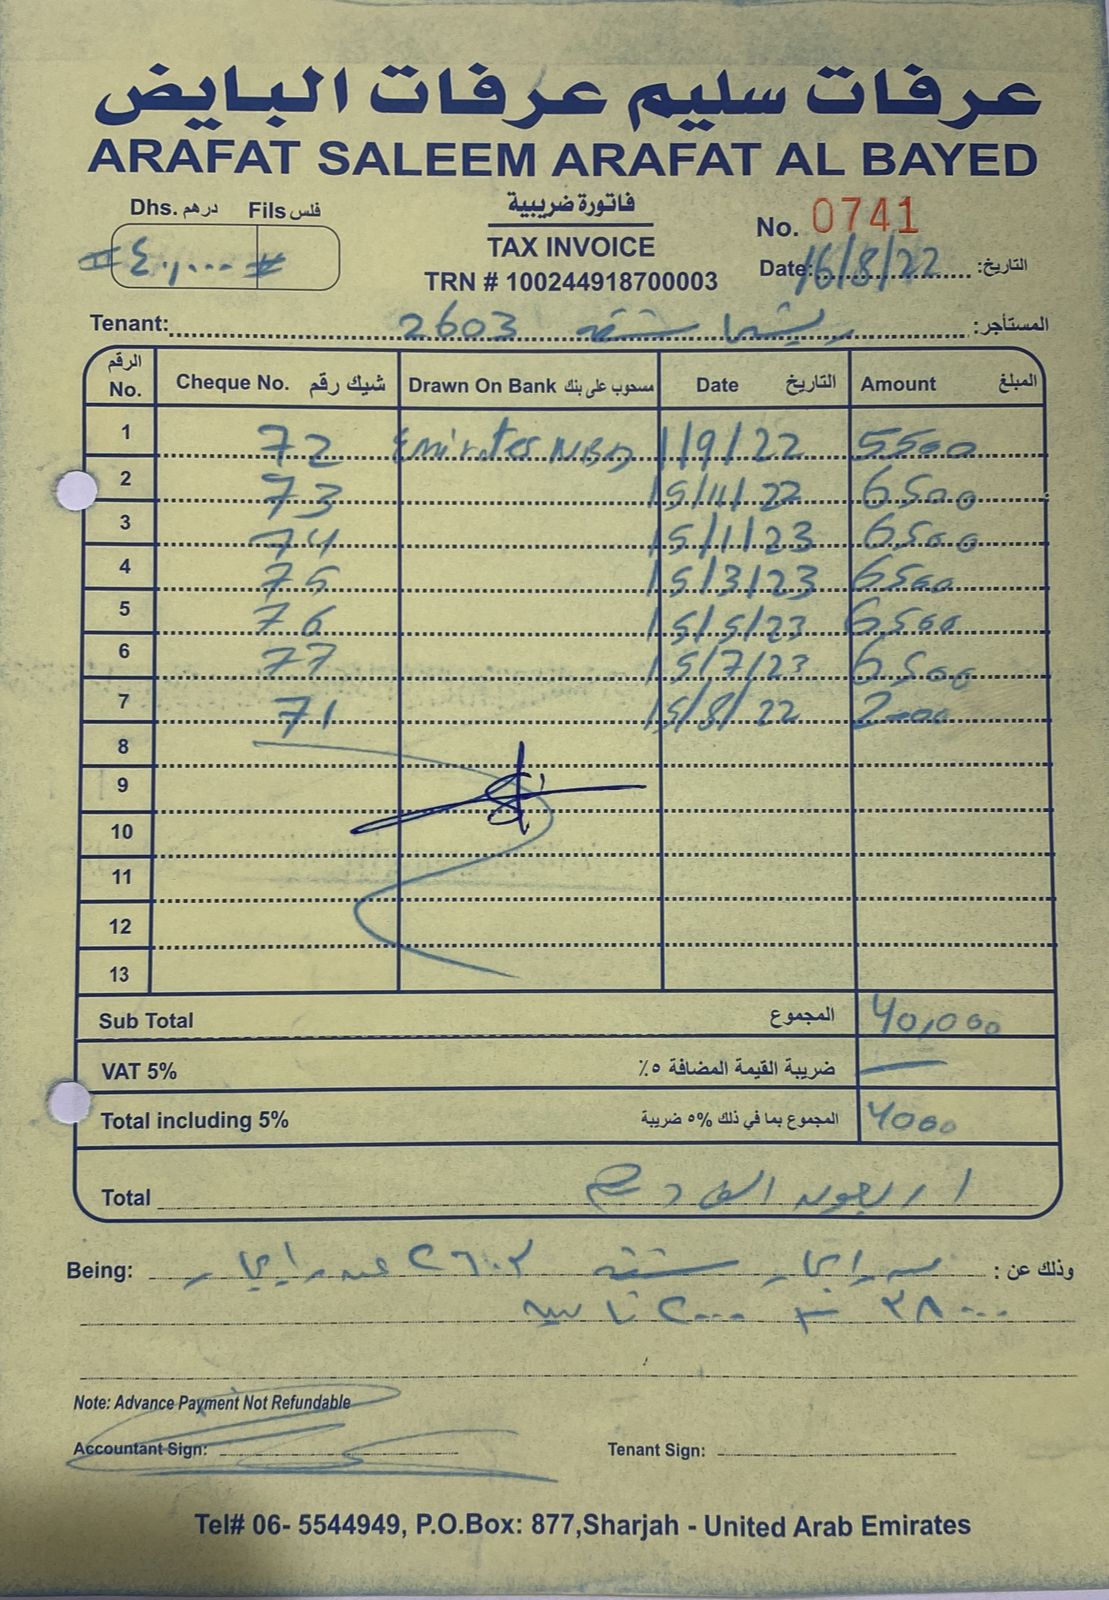 عرفات سليم عرفات البايض
ARAFAT SALEEM ARAFAT AL BAYED
Dhs. درهم Fils فلس
# ٤٠,٠٠٠ #
فاتورة ضريبية
TAX INVOICE
TRN # 100244918700003
No. 0741
Date: 16/8/22 التاريخ:
Tenant: 2603 شقة المستأجر:
الرقم No. Cheque No. شيك رقم Drawn On Bank مسحوب على بنك Date التاريخ Amount المبلغ
1 72 Emirates NBD 1/9/22 5500
2 73 15/11/22 6500
3 74 15/1/23 6500
4 75 15/3/23 6500
5 76 15/5/23 6500
6 77 15/7/23 6500
7 71 15/8/22 2000
8
9
10
11
12
13
Sub Total المجموع 40,000
VAT 5% ضريبة القيمة المضافة ٥٪ —
Total including 5% المجموع بما في ذلك ٥% ضريبة 4000
Total اربعون الف درهم
Being: ايجار شقة ٢٦٠٣ ايجار وذلك عن :
٣٨٠٠٠ ٢٠٠٠ تامين
Note: Advance Payment Not Refundable
Accountant Sign: Tenant Sign:
Tel# 06- 5544949, P.O.Box: 877,Sharjah - United Arab Emirates